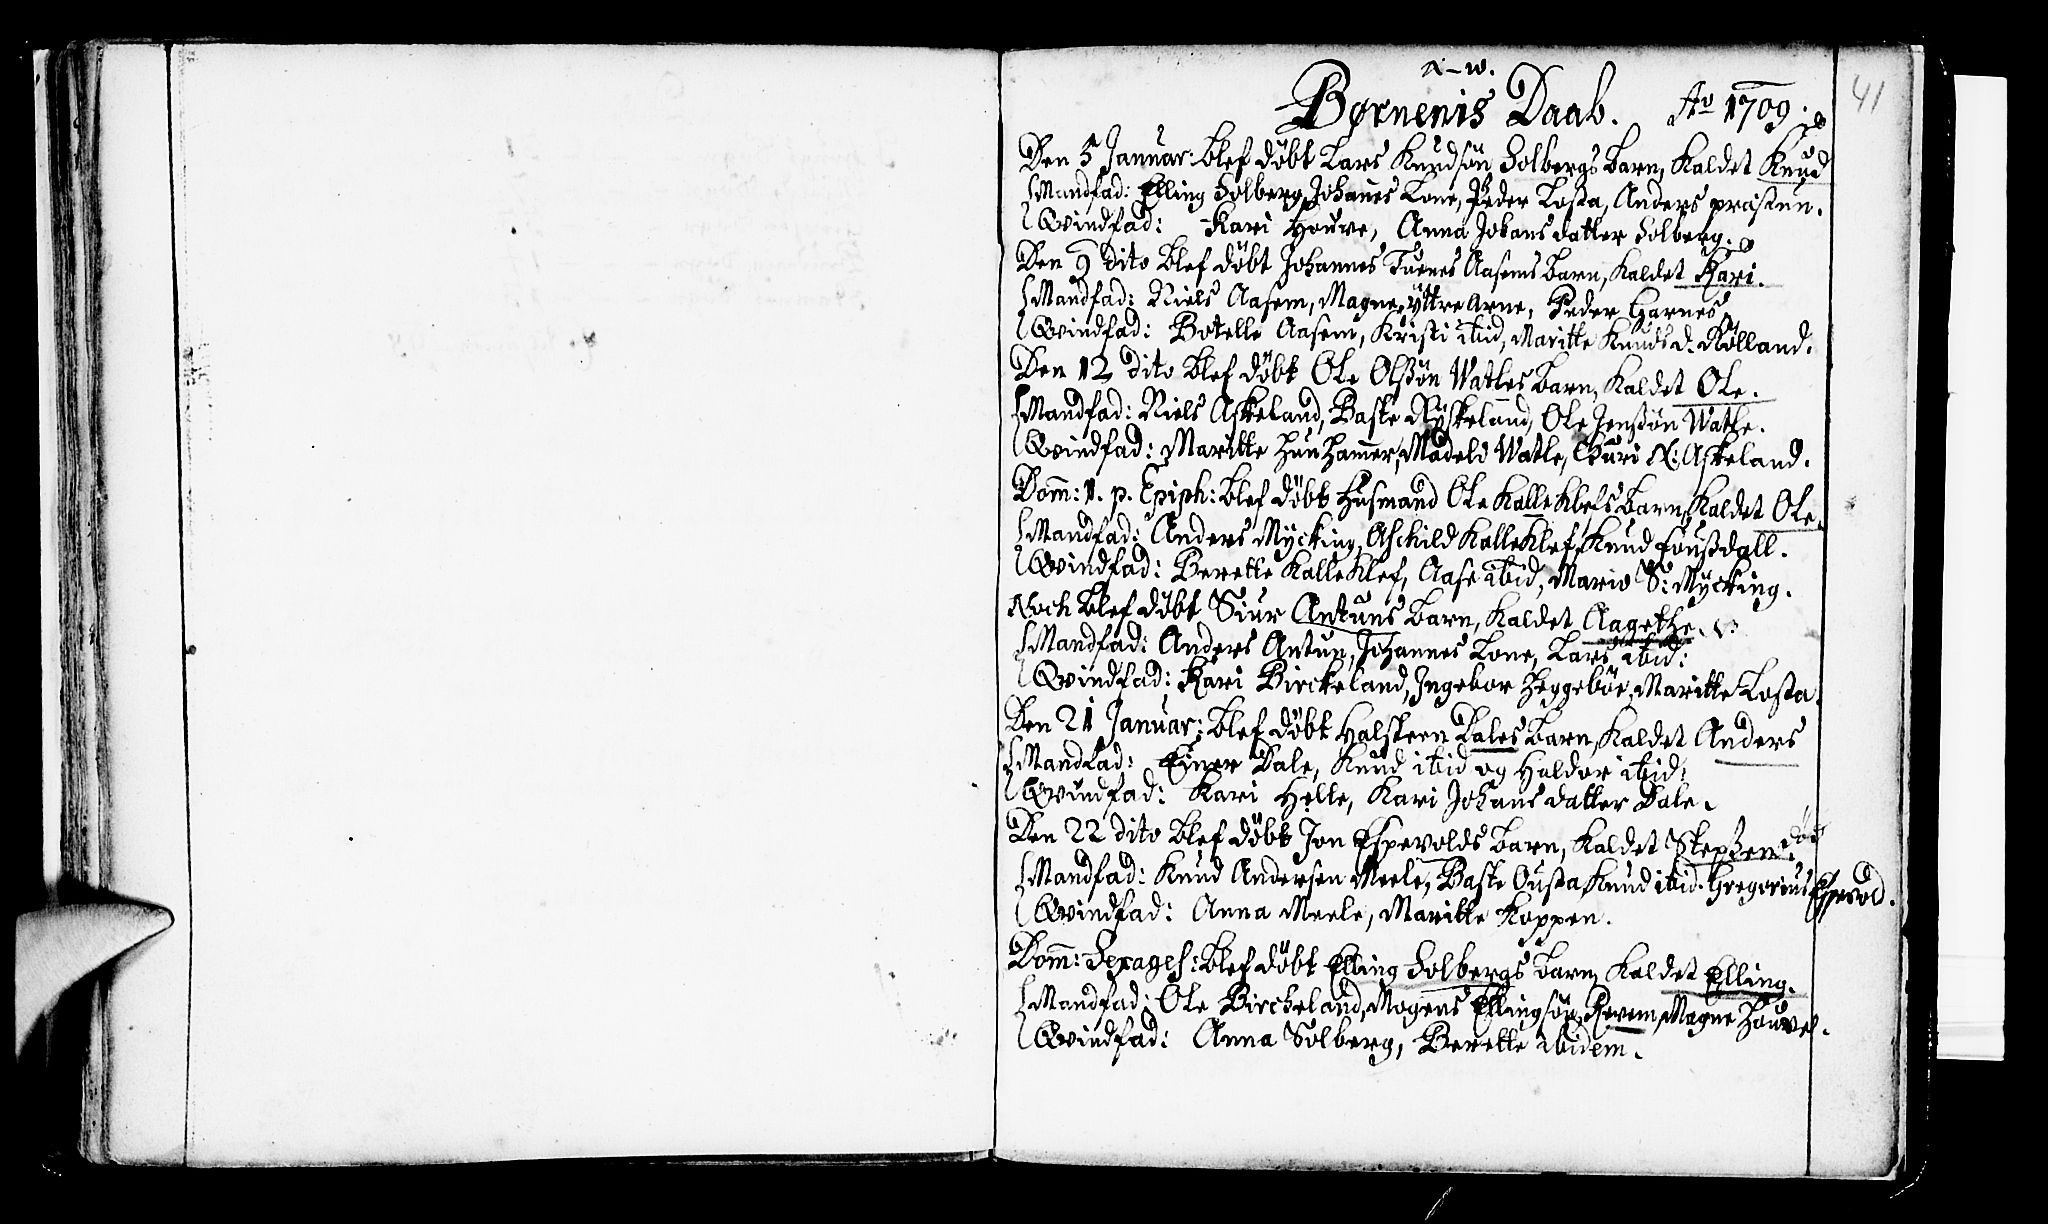 α-ω.
Børnenis Daab. Ao 1709.
41
Den 5 Januar: blef döbt Lars Knudsøn Solbergs barn, kaldet Knud
Mandfad: Elling Solberg, Johanes Lone, Peder Losta, Anders præstun.
Qvindfad: Kari Houve, Anna Johans datter Solberg.
Den 9 dito blef döbt Johannes Tuenes Aasems barn, kaldet Kari.
Mandfad: Niels Aasem, Magne yttre Arne, Peder Garnes,
Qvindfad: Botelle Aasem, Kristi ibid, Maritte Knuds d. Rölland.
Den 12 dito blef döbt Ole Olssön Watles barn, kaldet Ole.
Mandfad: Niels Askeland, Baste Ryskeland, Ole Jenssön Watle.
Qvindfad: Maritte Hunhamer, Madele Watle, Guri N: Askeland.
Dom: 1. p. Epiph: blef döbt Husmand Ole Kalleklefs barn, kaldet Ole.
Mandfad: Anders Mycking, Aschild Kalleklef, Knud Foussdall.
Qvindfad: Berette Kalleklef, Aase ibid, Mario S: Mycking.
Noch blef döbt Siur Antuns barn, kaldet Aagethe.
Mandfad: Anders Antun, Johannes Lone, Lars ibid:
Qvindfad: Kari Birckeland, Ingebor Heggebøe, Maritte Losta.
Den 21 Januar: blef döbt Halsteen Dales barn, kaldet Anders
Mandfad: Einer Dale, Knud ibid og Haldor ibid:
Qvindfad: Kari Helle, Kari Johans datter Dale.
Den 22 dito blef döbt Jon Espevolds barn, kaldet Stephen. död
Mandfad: Knud Andersen Meele, Baste Ousta, Knud ibid. Gregorius Espevold.
Qvindfad: Anna Meele, Maritte Koppen.
Dom: Sexages: blef döbt Elling Solbergs barn, kaldet Elling.
Mandfad: Ole Birckeland, Mogens Ellingsön Revem, Magne Houve.
Qvindfad: Anna Solberg, Berette ibidem.